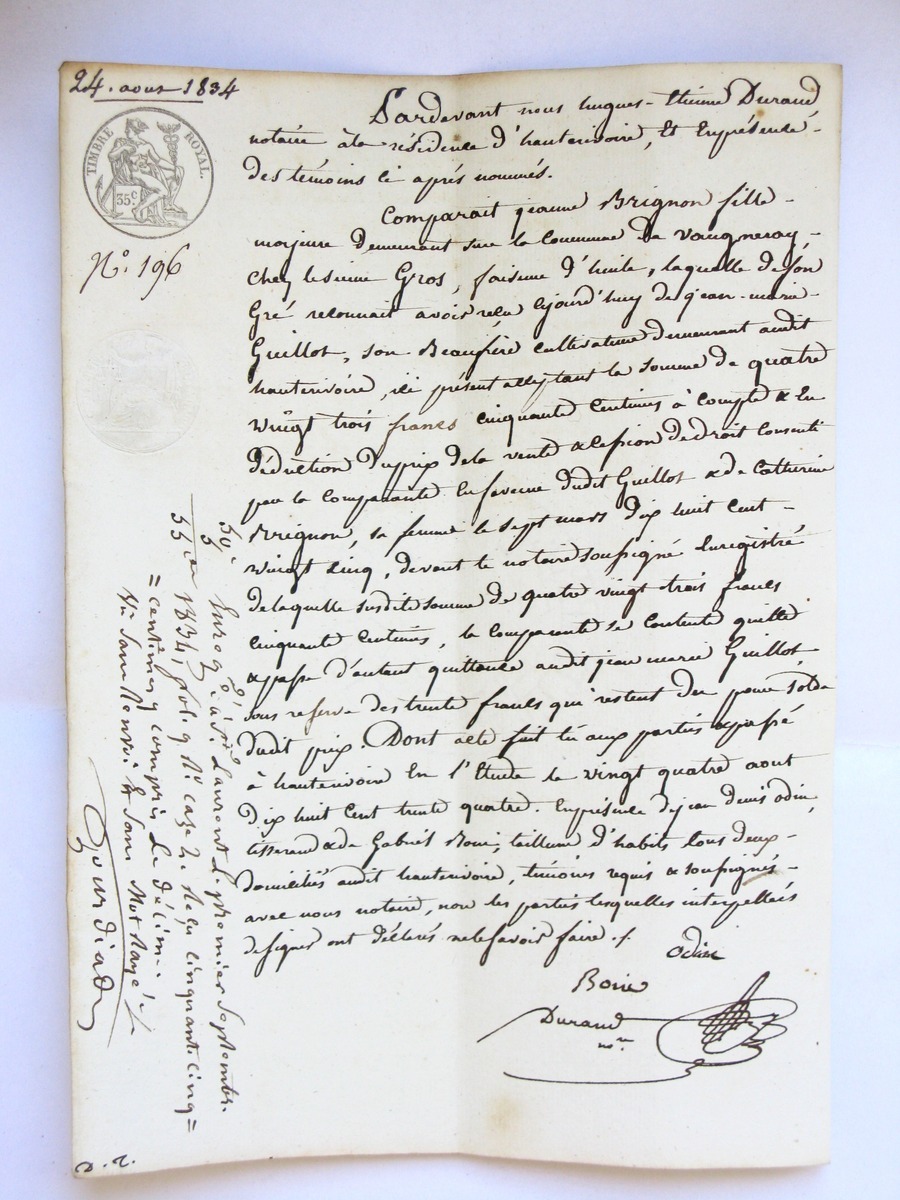 24. aout 1834
TIMBRE ROYAL.
35c
No. 196
Pardevant nous hugues-Etienne Durand
notaire à la résidence d'hauterivoire, Et Enprésence
des témoins ci aprés nommés.
Comparait jeanne Brignon fille
majeure Demeurant sur la Commune de Vaugneray,
chez le sieur Gros, faiseur d'huile, laquelle de son
Gré reconnait avoir reçu Cejourd'huy de jean-marie
Guillot, son Beaufrère Cultivateur demeurant audit
hauterivoire, ici présent acceptant la Somme de quatre
vingt trois francs cinquante Centimes à Compte & En
déduction du prix de la vente & cession de droit Consenti
par la Comparante En faveur dudit Guillot & de Catherine
Brignon, sa femme le sept mars dix huit Cent
vingt cinq, devant le notaire soussigné Enregistré
de laquelle susdite somme de quatre vingt trois francs
cinquante Centimes, la Comparante se Contente quitte
& passe d'autant quittance audit jean marie Guillot,
sous reserve des trente francs qui restent du pour solde
dudit prix. Dont acte fait lu aux parties & passé
à hauterivoire En l'Etude le vingt quatre aout
dix huit Cent trente quatre. En présence de jean denis odin,
tisserand & de Gabriel Boiri, tailleur d'habits tous deux
domiciliés audit hauterivoire, témoins requis & soussignés
avec nous notaire, non les parties lesquelles interpellées
de signer ont déclarés ne le savoir faire ./.
Odin
Boiri
Durand
nore
50c
5
55c
Enregé à St Laurent le premier Septembre
1834, fol. 9 Ro case 2. Reçu cinquante cinq =
= centimes compris le décime.
/. Sans Renvoi et Sans Mot Rayé /.
Gourdiat